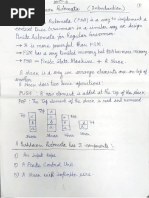 Automata (Introduction)
Pushdown Automata (PDA) is a way to implement a
Context Free Grammar in a similar way we design
Finite Automata for Regular Grammar
→ It is more powerful than FSM
→ FSM has a very limited memory but PDA has more memory
→ PDA = Finite State Machine + A Stack
A stack is a way we arrange elements one on top of
another
A stack does two basic operations:
PUSH: A new element is added at the Top of the stack
POP: The Top element of the stack is read and removed
A Pushdown Automata has 3 components:
1) An input tape
2) A Finite Control Unit
3) A Stack with infinite size